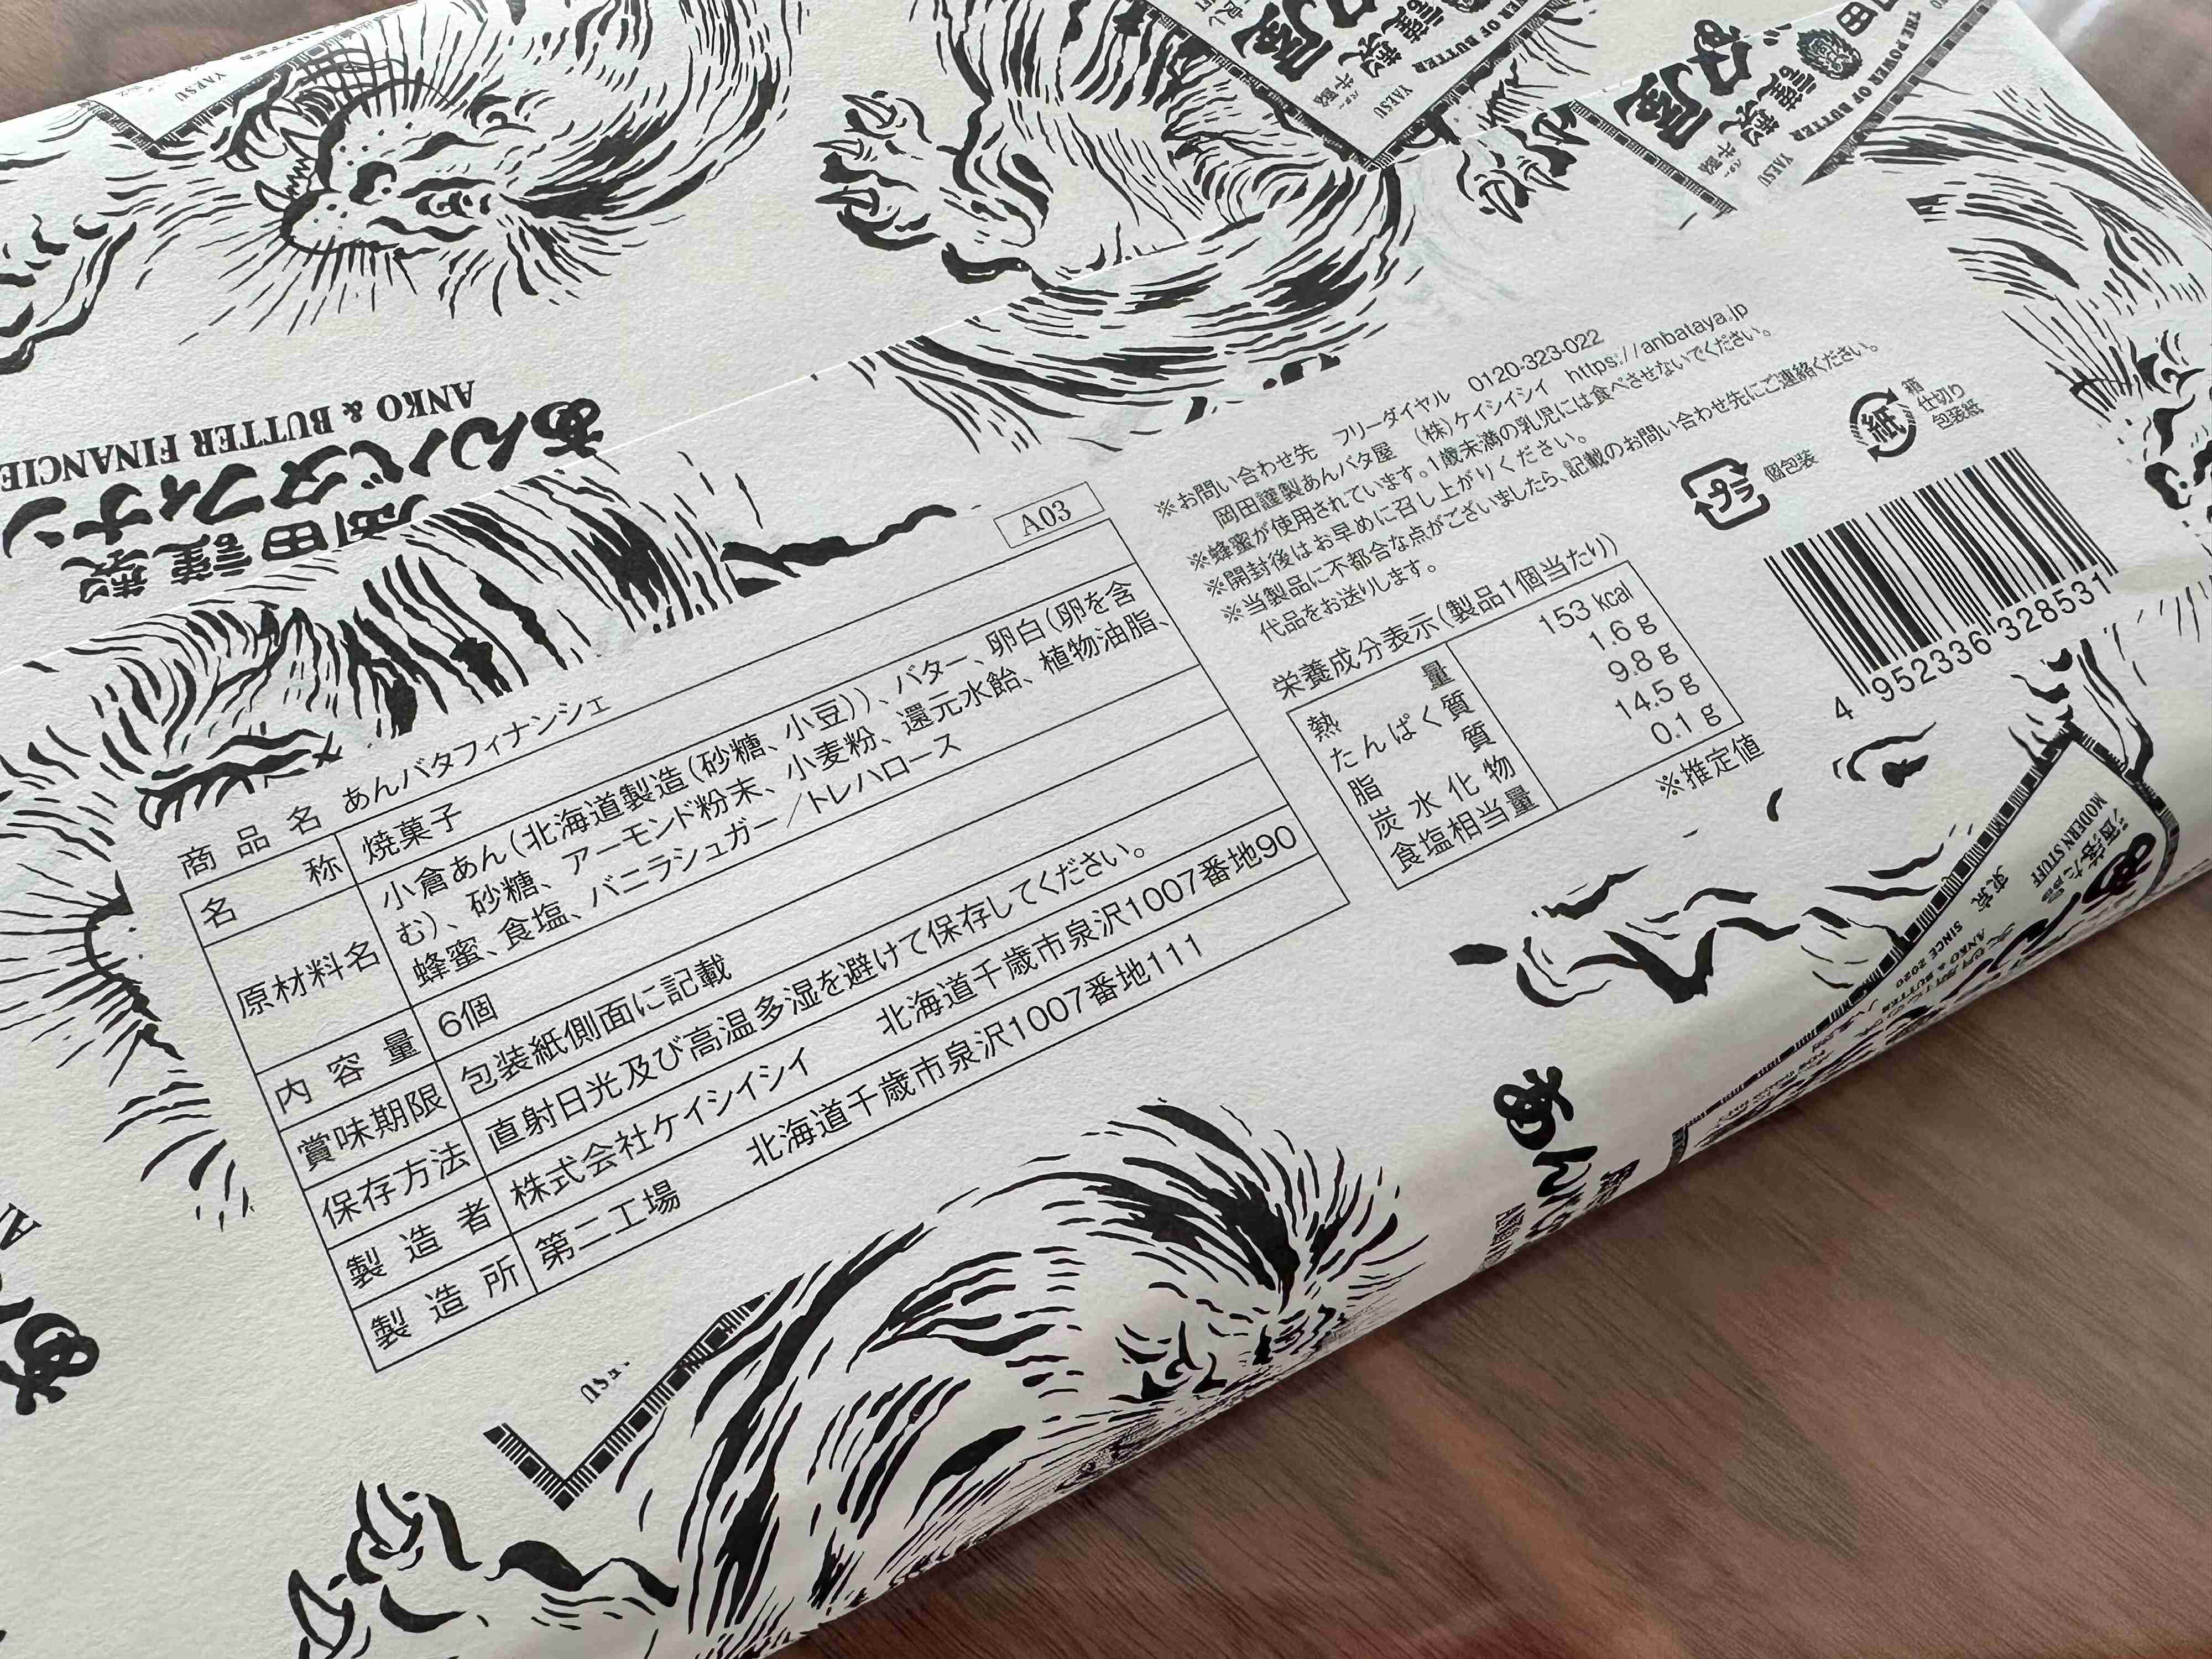 ANKO & BUTTER FINANCIE
あんバタフィナン
岡田謹製
THE POWER OF BUTTER
YAESU
A03
商品名 あんバタフィナンシェ
名称 焼菓子
原材料名 小倉あん(北海道製造(砂糖、小豆))、バター、卵白(卵を含
む)、砂糖、アーモンド粉末、小麦粉、還元水飴、植物油脂、
蜂蜜、食塩、バニラシュガー/トレハロース
内容量 6個
賞味期限 包装紙側面に記載
保存方法 直射日光及び高温多湿を避けて保存してください。
製造者 株式会社ケイシイシイ 北海道千歳市泉沢1007番地90
製造所 第二工場 北海道千歳市泉沢1007番地111
※お問い合わせ先 フリーダイヤル 0120-323-022
岡田謹製あんバタ屋 (株)ケイシイシイ https://anbataya.jp
※蜂蜜が使用されています。1歳未満の乳児には食べさせないでください。
※開封後はお早めに召し上がりください。
※当製品に不都合な点がございましたら、記載のお問い合わせ先にご連絡ください。
代品をお送りします。
栄養成分表示(製品1個当たり)
熱量 153 kcal
たんぱく質 1.6 g
脂質 9.8 g
炭水化物 14.5 g
食塩相当量 0.1 g
※推定値
プラ 個包装
紙 箱
仕切り
包装紙
4 952336 328531
MODERN STUFF
東京
SINCE 2020
ANKO & BUTTER